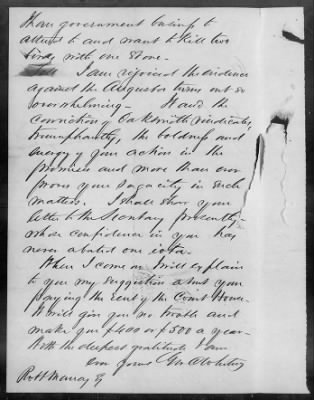 other government business to
attend to and want to kill two
birds with one stone.
I am rejoiced the evidence
against the Augusta turns out so
overwhelming - It and the
conviction of Oaksmith vindicates,
triumphantly, the boldness and
energy of your action in the
premises and more than ever
proves your sagacity in such
matters. I shall show your
letter to the Secretary presently -
whose confidence in you has
never abated one iota.
When I come on I will explain
to you my suggestion about your
paying the rent of the Court House.
It will give you no trouble and
make you $400 or $500 a year -
With the deepest gratitude I am
ever yours Geo C Whiting
Robt Murray Esq